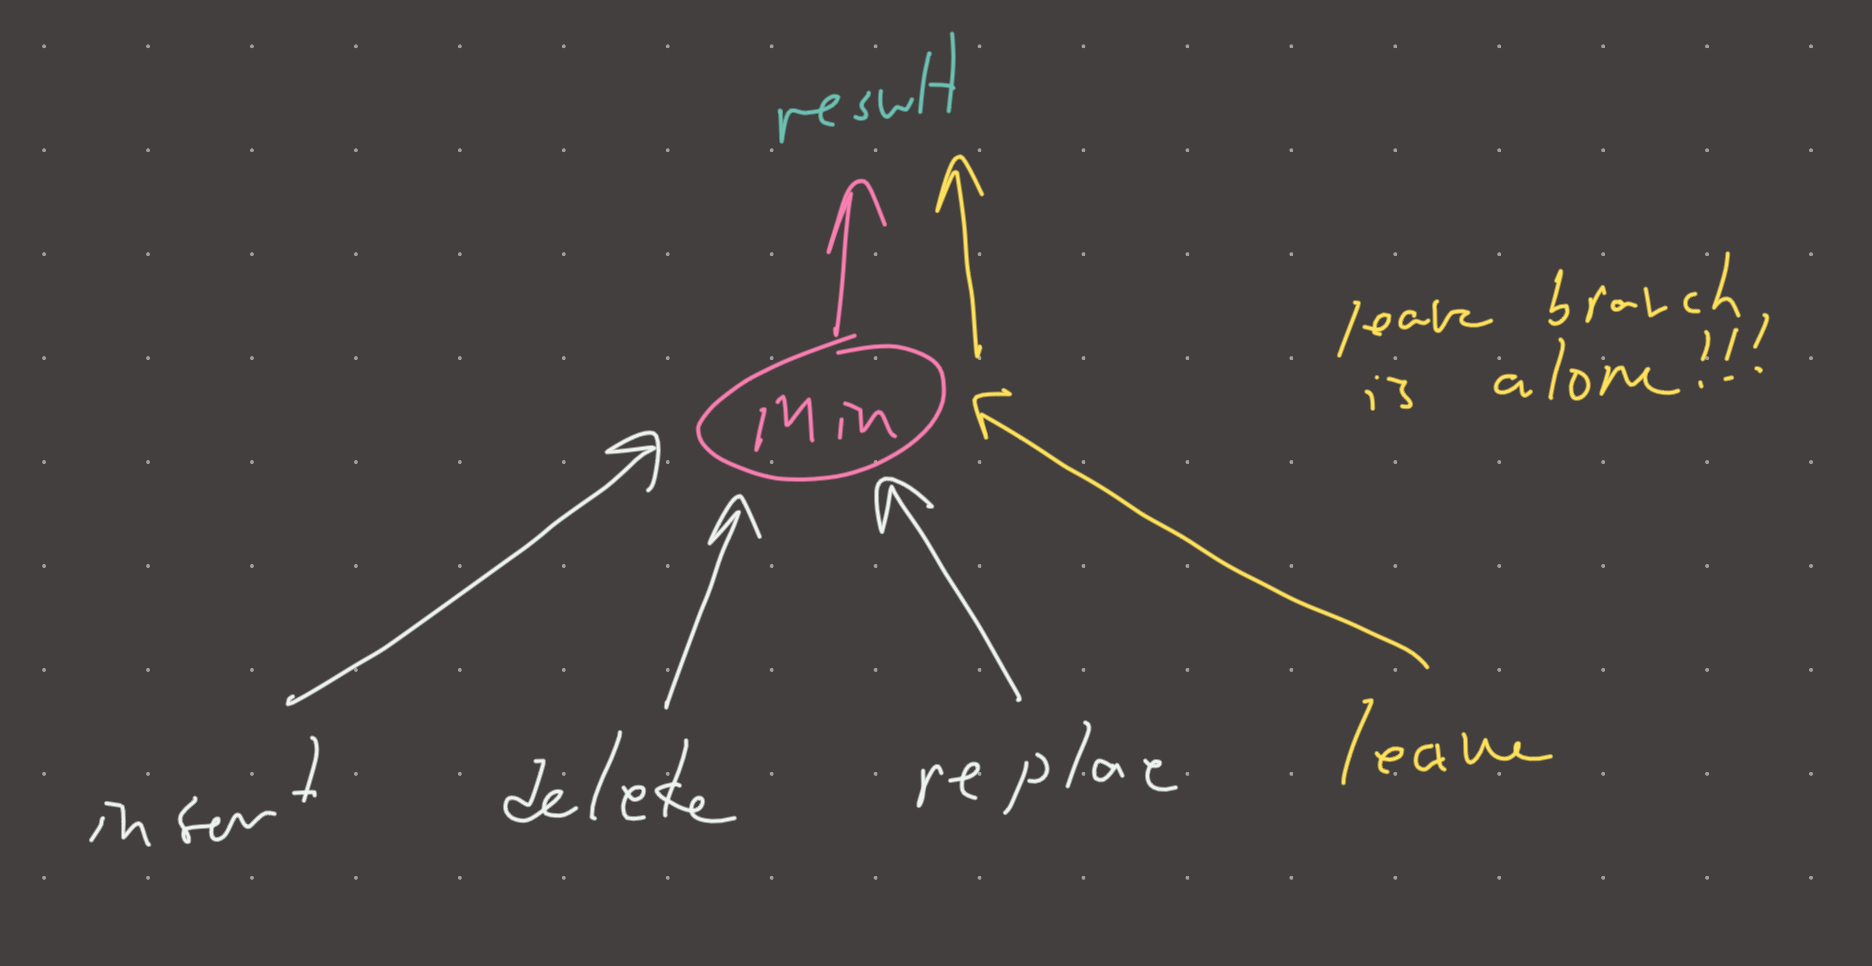 result
leave branch
is alone!!!
Min
insert
delete
replace
leave